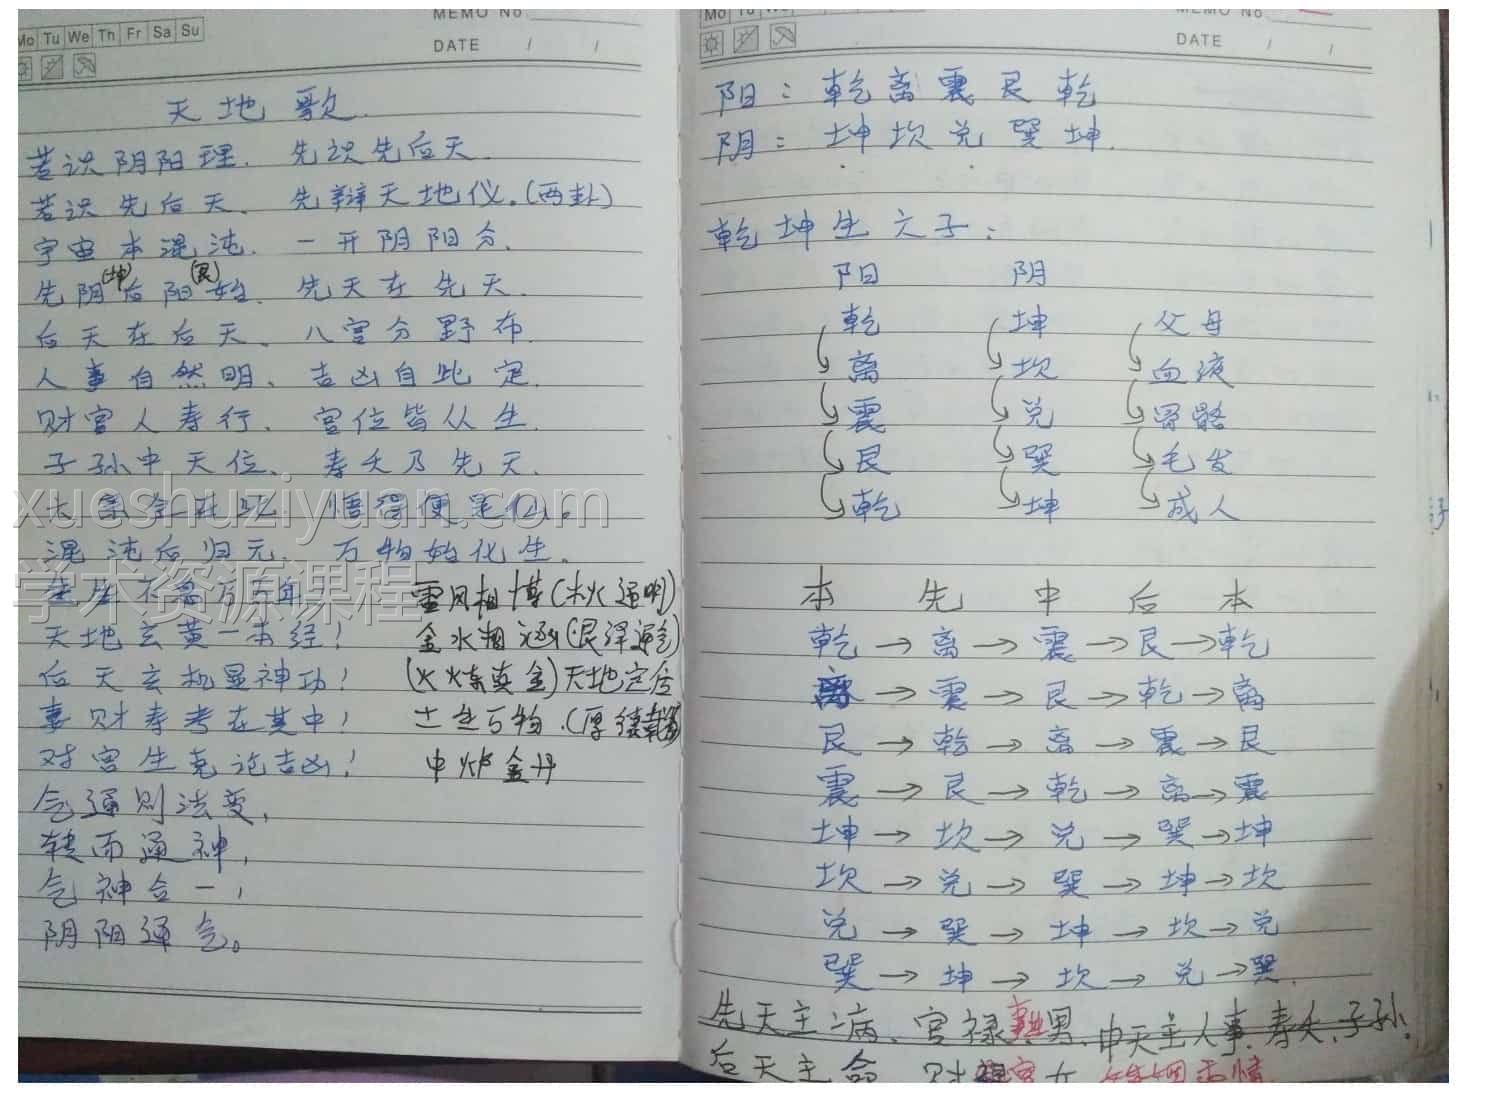 MEMO No
Mo Tu We Th Fr Sa Su
DATE / /
天地歌
若识阴阳理、先识先后天.
若识先后天、先辩天地仪。(两卦)
宇宙本混沌、一开阴阳分、
(坤) (艮)
先阴后阳始、先天在先天.
后天在后天、八宫分野布.
人事自然明、吉凶自此定.
财官人寿行、宫位皆从生.
子孙中天位、寿夭乃先天.
悟得便是仙。
xueshuziyuan.com
混沌后归元、万物始化生.
学术资源课程
雷风相博(木火通明)
天地玄黄一本经! 金水相涵(艮泽通乾)
后天玄机显神功! (火炼真金)天地定位
事财寿考在其中! 土生万物.(厚德载物)
对宫生克论吉凶! 中炉金丹
气通则法变,
转而通神,
气神合一,
阴阳通气。
Mo Tu We
MEMO No
DATE / /
阳:乾离震艮乾
阴:坤坎兑巽坤.
乾坤生六子:
阳 阴
乾 坤 父母
离 坎 血液
震 兑 骨骼
艮 巽 毛发
乾 坤 成人
本 先 中 后 本
乾→离→震→艮→乾
离→震→艮→乾→离
艮→乾→离→震→艮
震→艮→乾→离→震
坤→坎→兑→巽→坤
坎→兑→巽→坤→坎
兑→巽→坤→坎→兑
巽→坤→坎→兑→巽.
先天主病、官禄事业男、中天主人事、寿夭、子孙.
后天主命 财 女